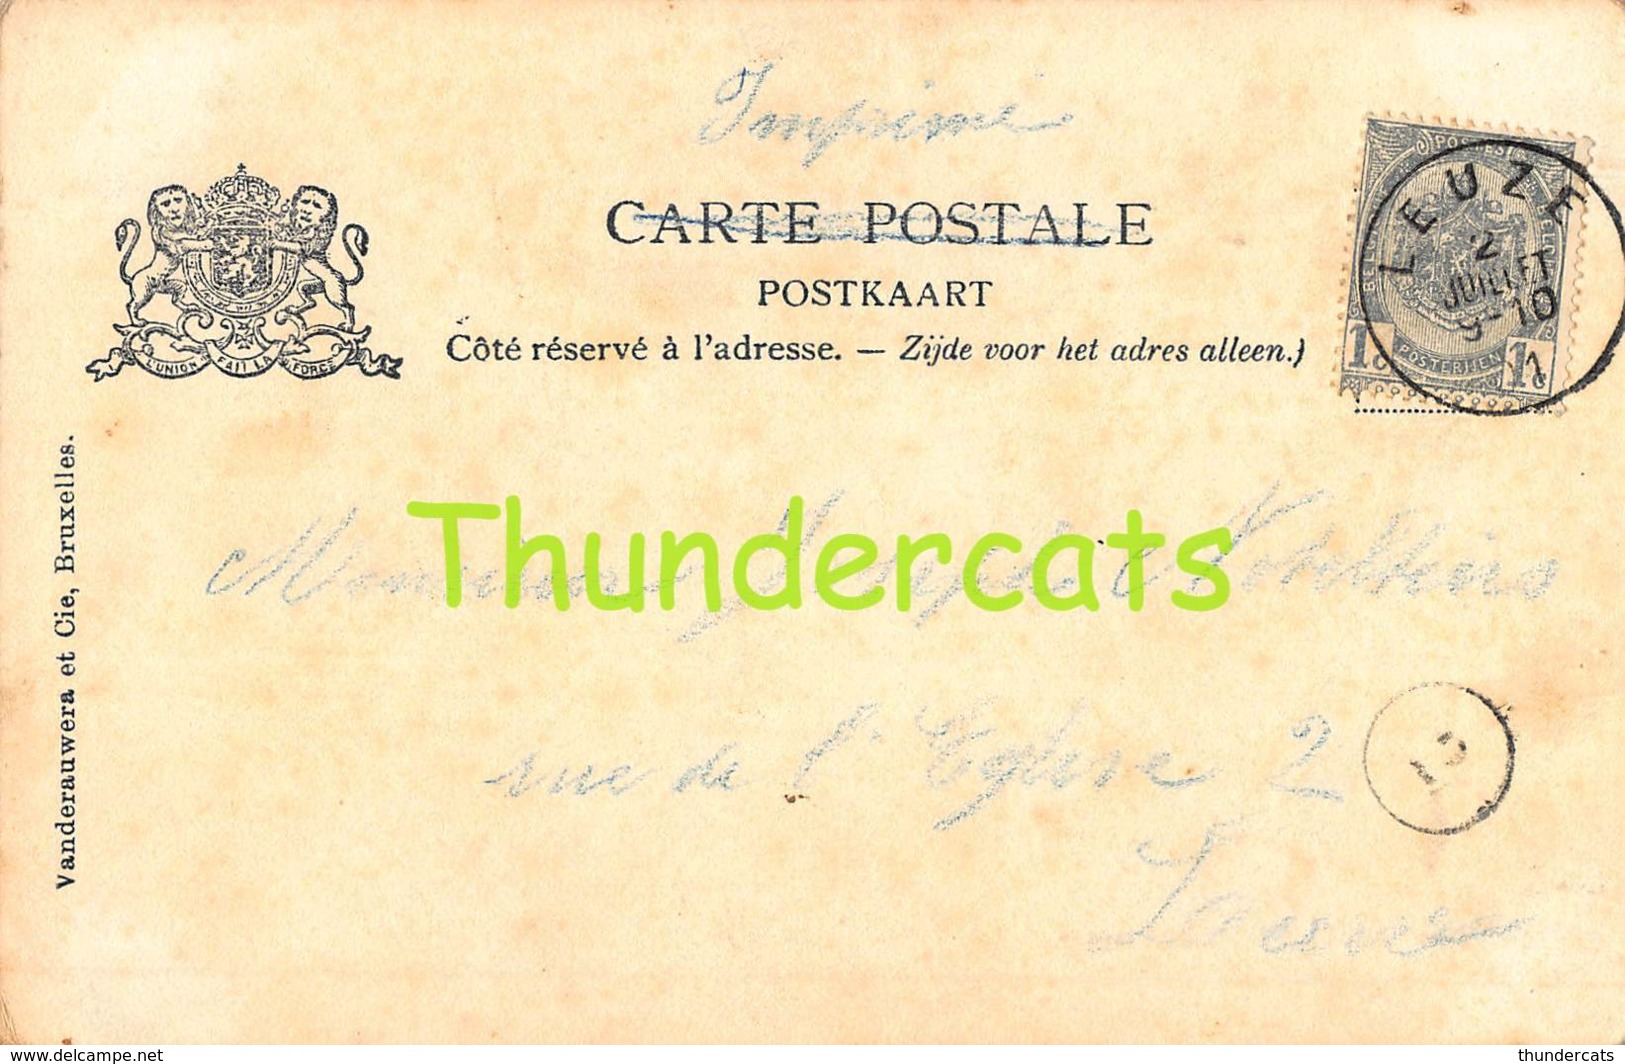 Imprimé
CARTE POSTALE
POSTKAART
Côté réservé à l'adresse. — Zijde voor het adres alleen.)
L'UNION FAIT LA FORCE
POSTES
LEUZE
2
JUILLET
9-10
1c POSTERIJEN 1c
Vanderauwera et Cie, Bruxelles.
Thundercats
Monsieur Joseph
rue de l'Eglise 2
2
www.delcampe.net
thundercats